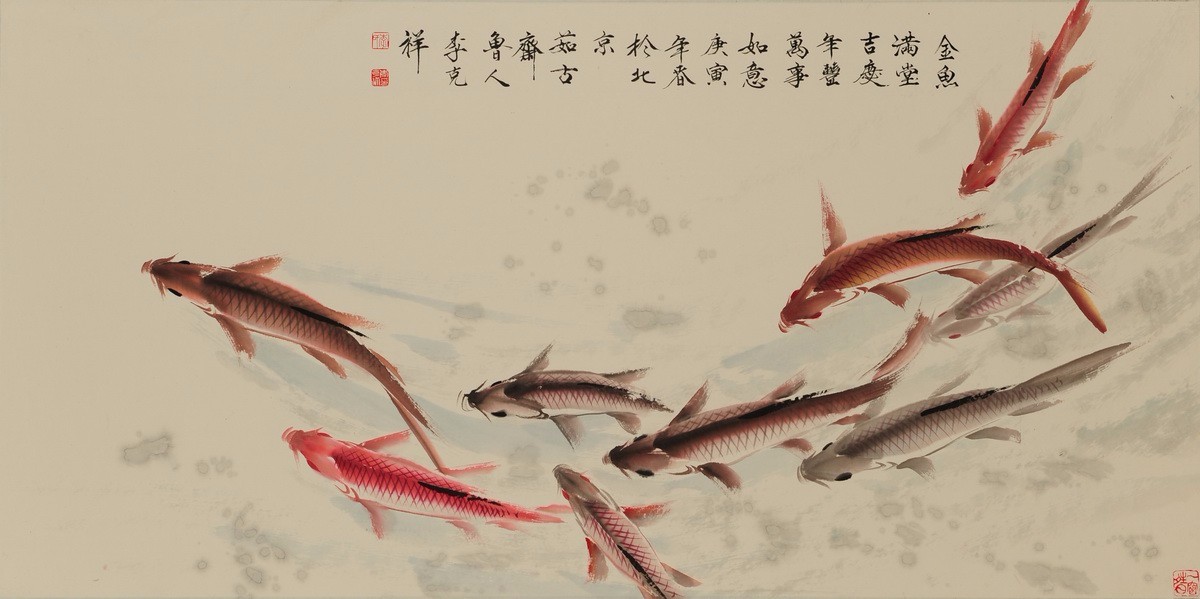 金魚
滿堂
吉慶
年豐
萬事
如意
庚寅
年春
於北
京
茹古
齋
魯人
李克
祥